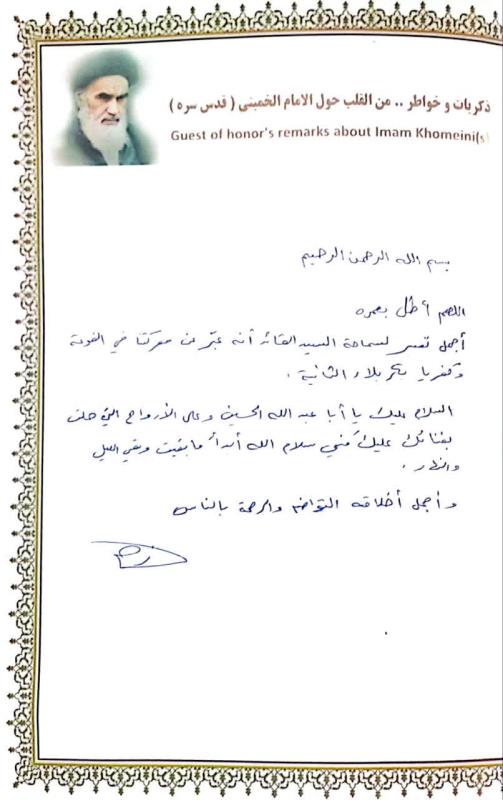 ذكريات و خواطر .. من القلب حول الامام الخميني ( قدس سره )
Guest of honor's remarks about Imam Khomeini(s
بسم الله الرحمن الرحيم
اللهم أطل بعمره
أجمل تعبير لسماحة السيد القائد أنه عبّر عن معركتنا في الفوعة
وكفريا بكربلاء الثانية .
السلام عليك يا أبا عبد الله الحسين وعلى الأرواح التي حلت
بفنائك عليك مني سلام الله أبداً ما بقيت وبقي الليل
والنهار .
وأجمل أخلاقه التواضع والرحمة بالناس